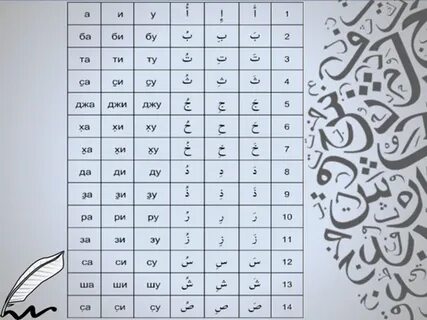 а и у أُ إِ أَ 1
ба би бу بُ بِ بَ 2
та ти ту تُ تِ تَ 3
ҫа ҫи ҫу ثُ ثِ ثَ 4
джа джи джу جُ جِ جَ 5
ха хи ху حُ حِ حَ 6
х̱а х̱и х̱у خُ خِ خَ 7
да ди ду دُ دِ دَ 8
ҙа ҙи ҙу ذُ ذِ ذَ 9
ра ри ру رُ رِ رَ 10
за зи зу زُ زِ زَ 11
са си су سُ سِ سَ 12
ша ши шу شُ شِ شَ 13
ҫа ҫи ҫу صُ صِ صَ 14